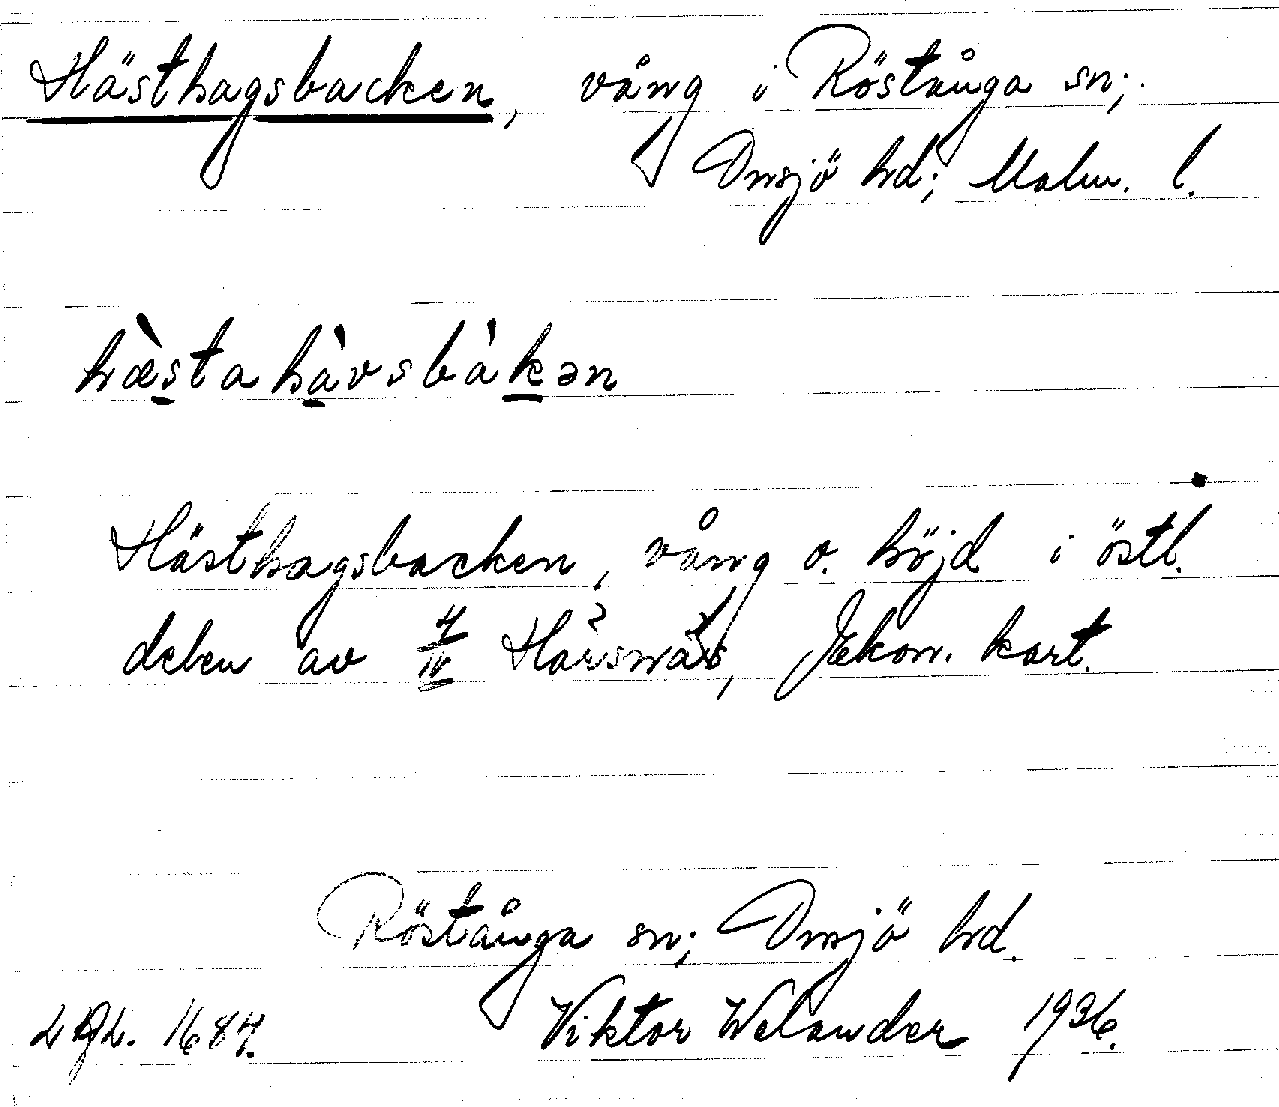 Hästhagsbacken, vång i Röstånga sn;
Onsjö hd; Malm. l.
hæ̀stahàvsbàkən
Hästhagsbacken, vång o. höjd i östl.
delen av 4/IV Håsnäs, Ekon. kart.
Röstånga sn; Onsjö hd.
Viktor Welander 1936.